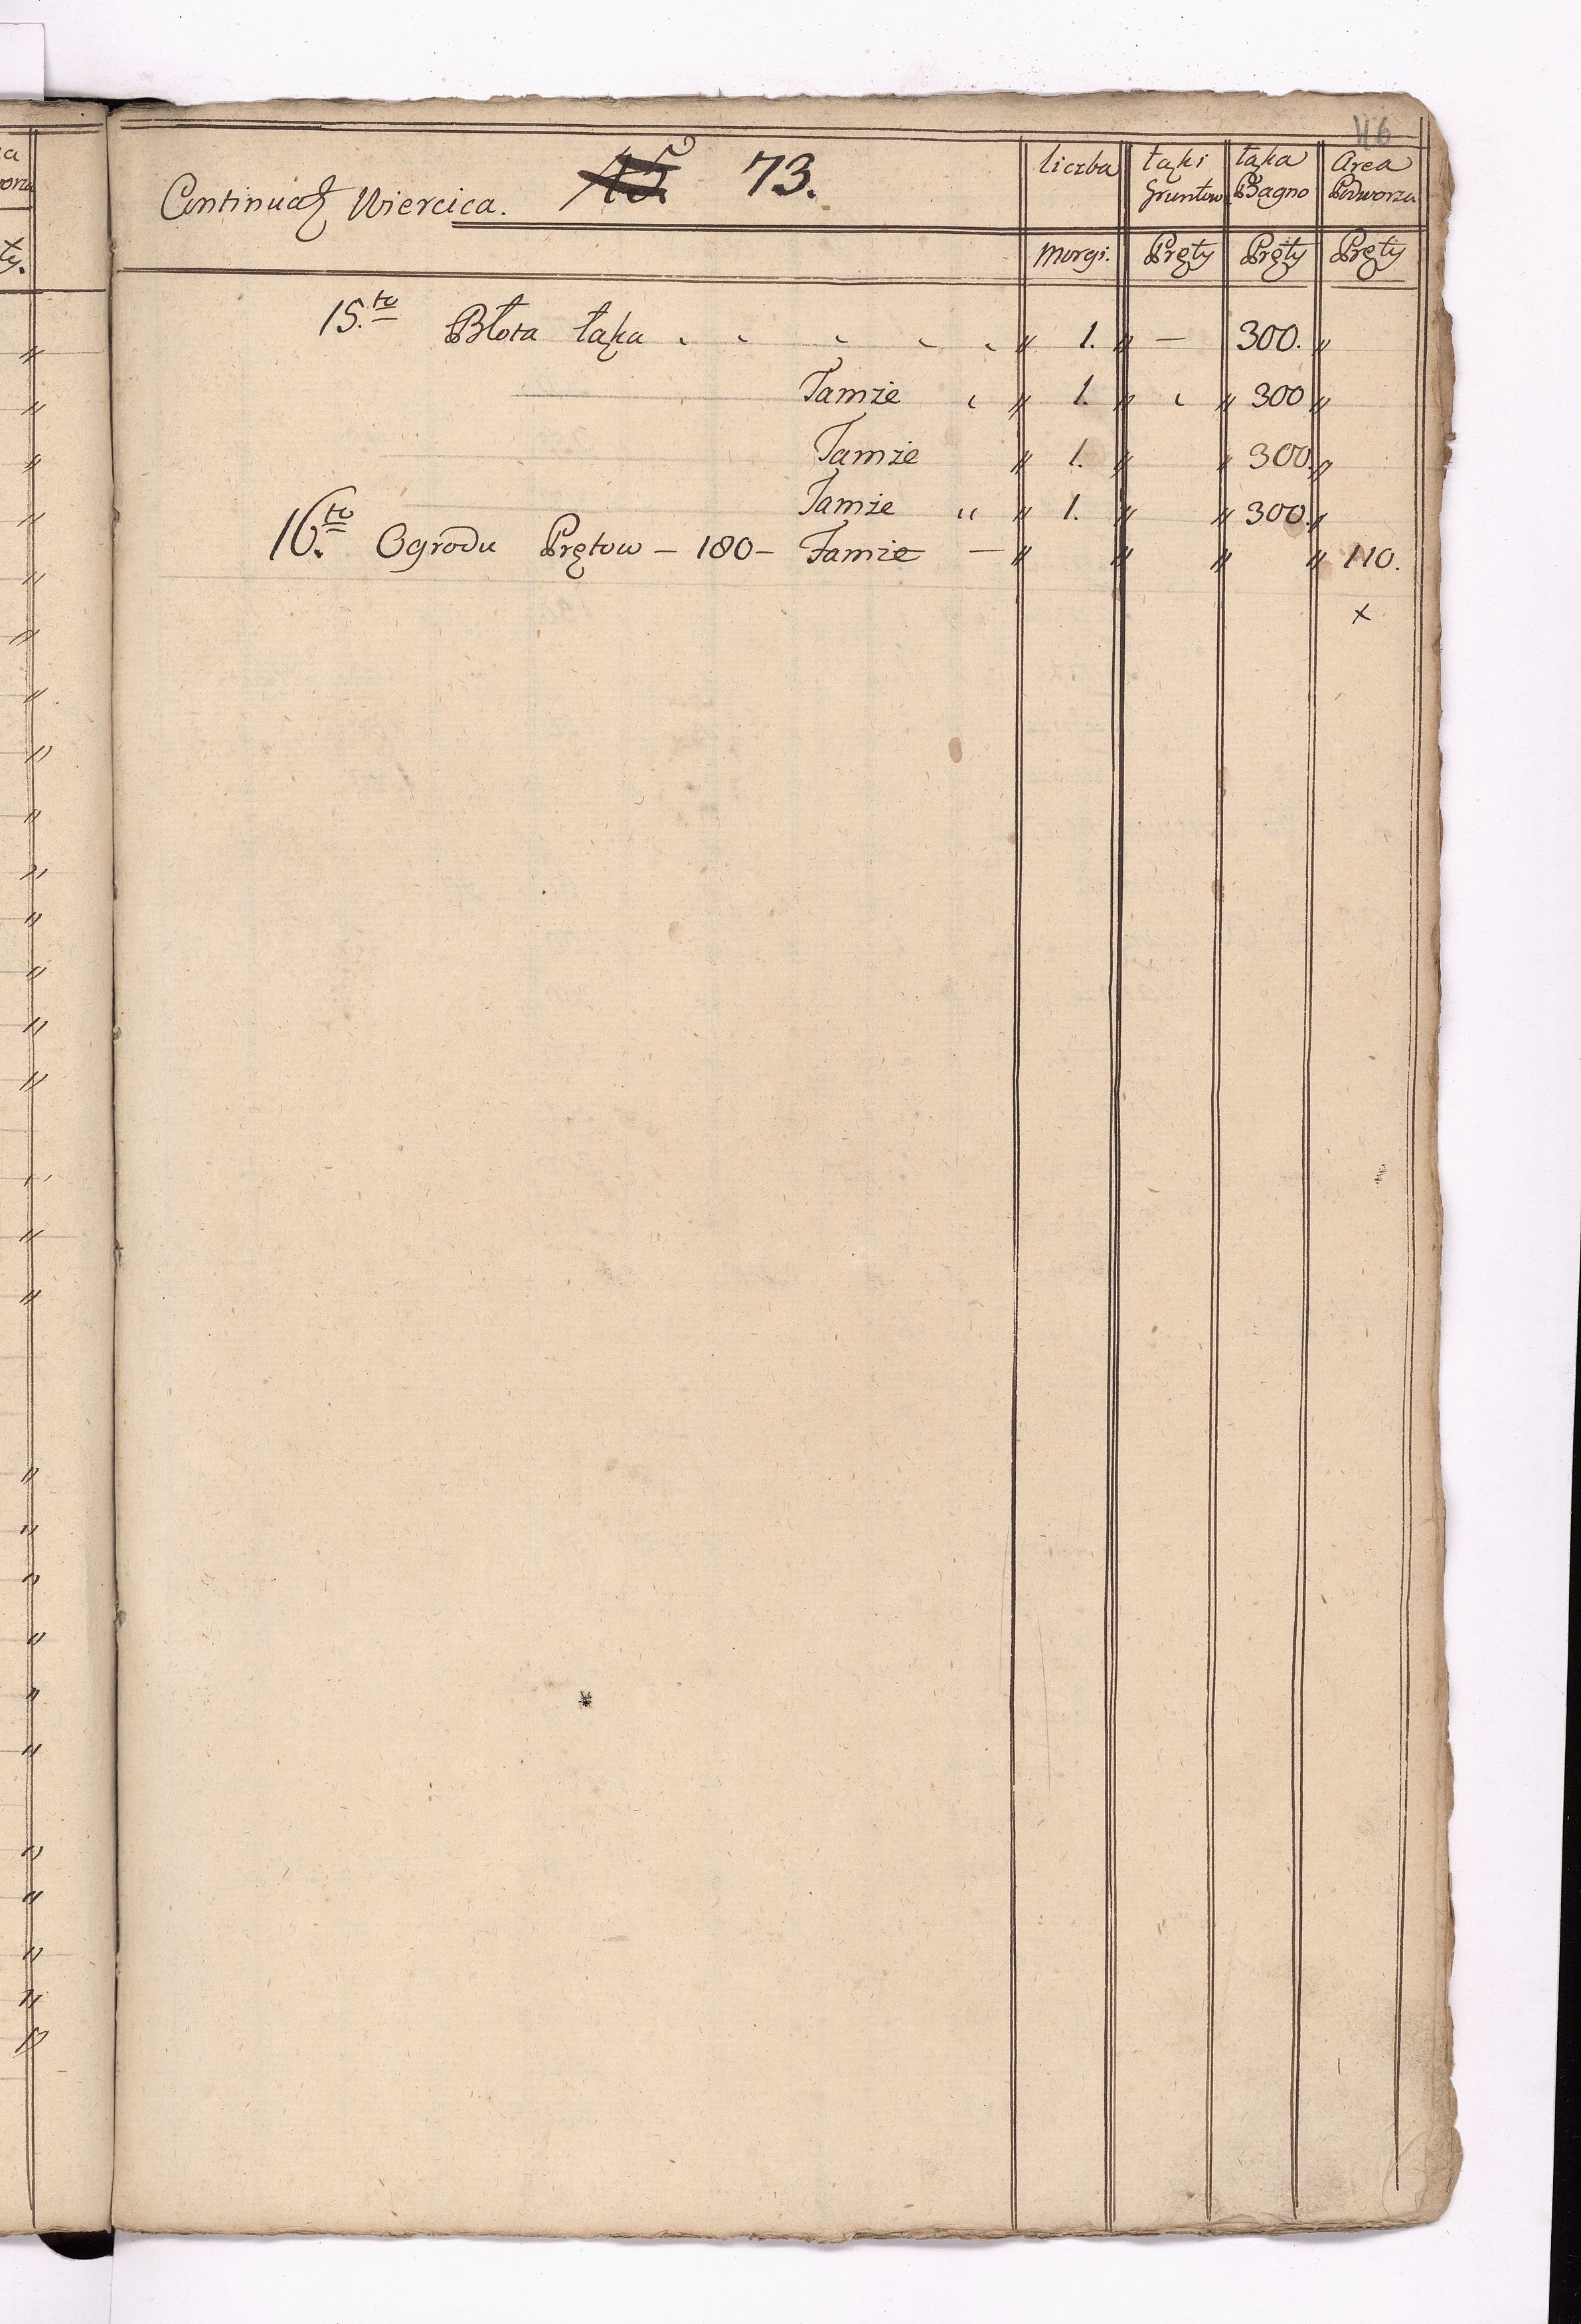 46
Continuaõ Wiercica. 73.
liczba łąki Gruntow łąka Bagno Area Podworza
Morgi. Pręty Pręty Pręty
15.to Błota łąka „ 1. „ — 300. „
Tamże „ 1. „ „ 300 „
Tamże „ 1. „ „ 300. „
Tamże „ „ 1. „ „ 300. „
16.to Ogrodu Prętow – 180 – Tamże — „ „ „ „ 110.
x